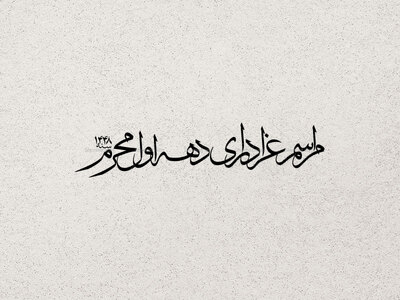 مراسم عزاداری دهه اول محرم ۱۴۴۸